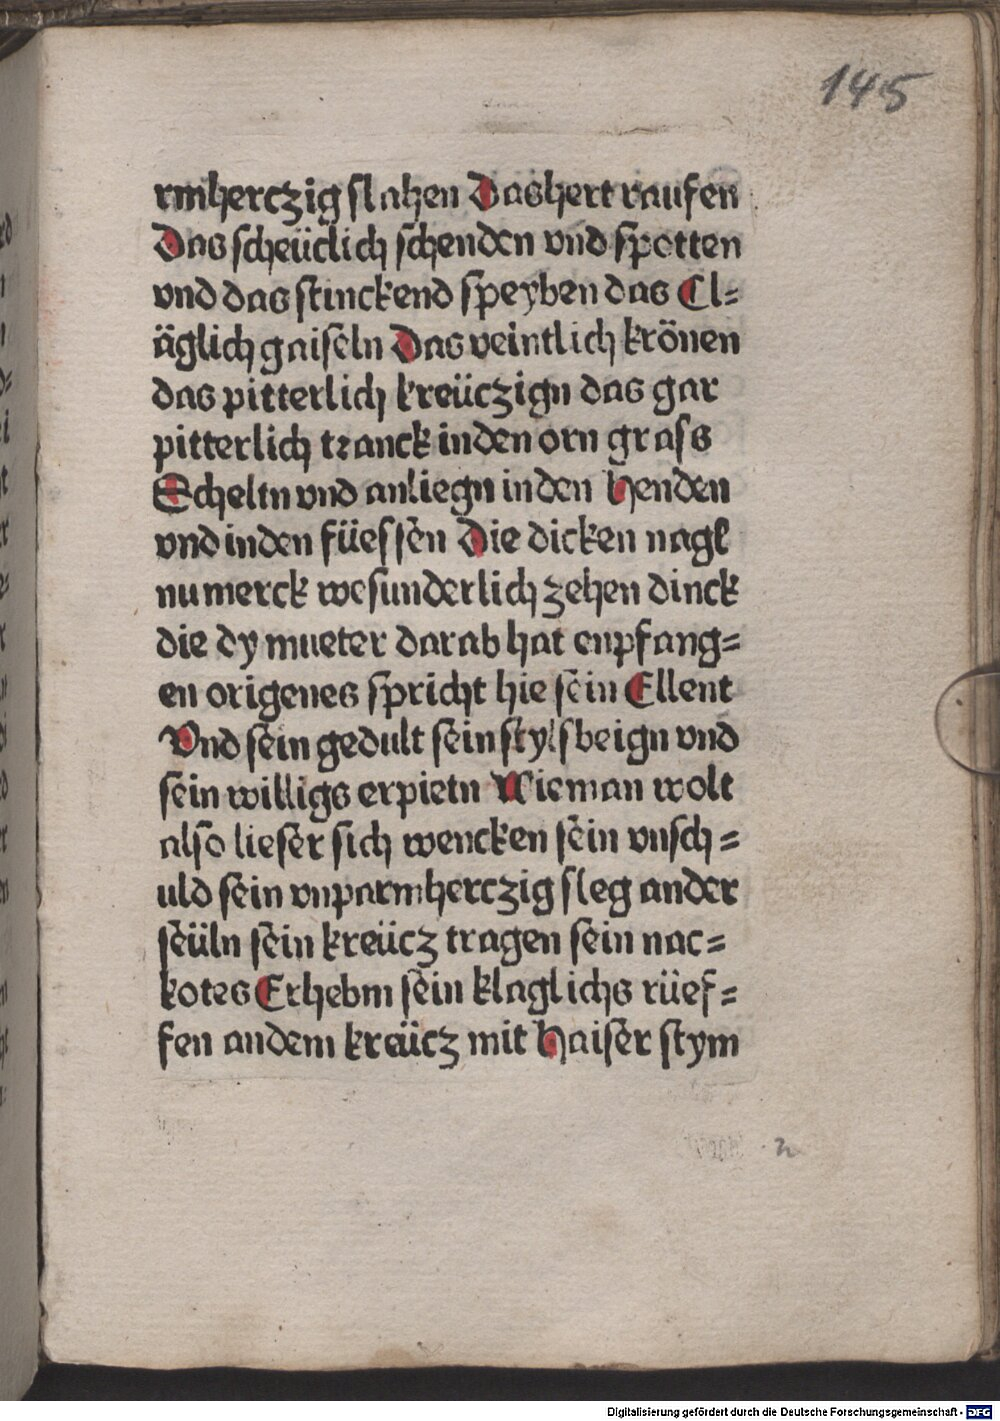 145
rmherczig slahen Das hert raufen
Das scheüclich schenden vnd spotten
vnd das stinckend speyben das Cl=
äglich gaiseln Das veintlich krönen
das pitterlich kreüczign das gar
pitterlich tranck in den orn grass
Scheltn vnd anliegn in den henden
vnd in den füessen Die dicken nagl
nu merck wesunderlich zehen dinck
die dy mueter darab hat enpfang=
en origenes spricht hie sein Ellent
Vnd sein gedult sein stylsbeign vnd
sein willigs erpietn Wie man wolt
also lieser sich wencken sein vnsch=
uld sein vnparmherczig sleg an der
seüln sein kreücz tragen sein nac=
kotes Erhebm sein klaglichs rüef=
fen an dem kreücz mit haiser stym
Digitalisierung gefördert durch die Deutsche Forschungsgemeinschaft - DFG